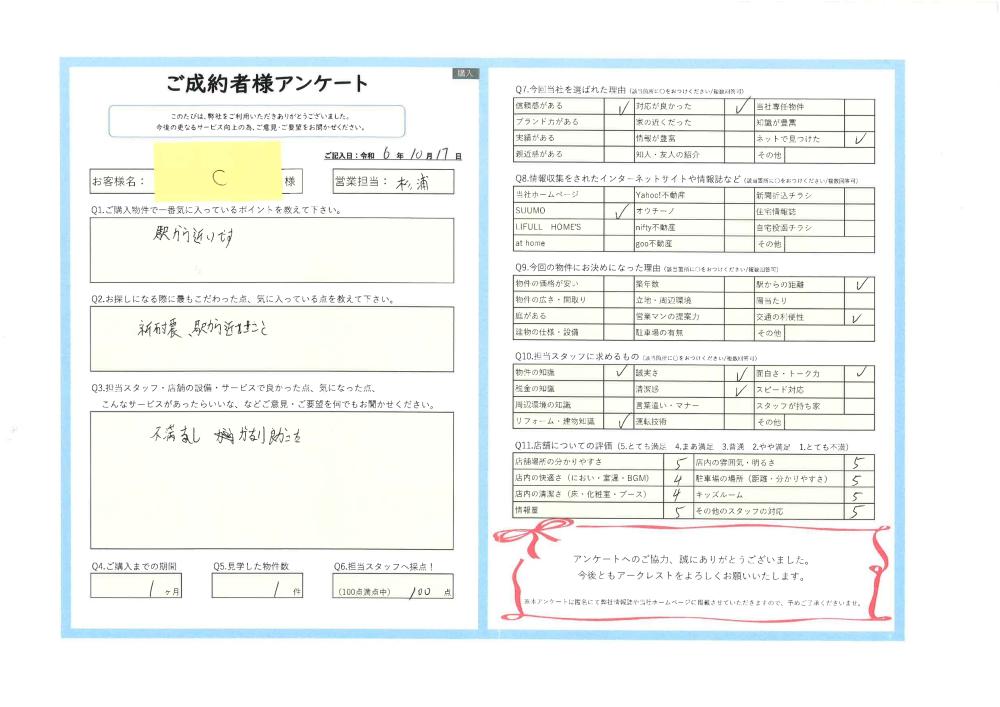 購入
ご成約者様アンケート
このたびは、弊社をご利用いただきありがとうございました。
今後の更なるサービス向上の為、ご意見・ご要望をお聞かせください。
ご記入日：令和 6 年 10 月 17 日
お客様名： C 様 営業担当： 杉浦
Q1.ご購入物件で一番気に入っているポイントを教えて下さい。
駅から近いです
Q2.お探しになる際に最もこだわった点、気に入っている点を教えて下さい。
新耐震、駅から近きこと
Q3.担当スタッフ・店舗の設備・サービスで良かった点、気になった点、
こんなサービスがあったらいいな、などご意見・ご要望を何でもお聞かせください。
不満なし かなり良かった
Q4.ご購入までの期間 Q5.見学した物件数 Q6.担当スタッフへ採点！
1 ヶ月 1 件 (100点満点中) 100 点
Q7.今回当社を選ばれた理由 (該当箇所に○をおつけください/複数回答可)
信頼感がある ✓ 対応が良かった ✓ 当社専任物件
ブランド力がある 家の近くだった 知識が豊富
実績がある 情報が豊富 ネットで見つけた ✓
親近感がある 知人・友人の紹介 その他
Q8.情報収集をされたインターネットサイトや情報誌など (該当箇所に○をおつけください/複数回答可)
当社ホームページ Yahoo!不動産 新聞折込チラシ
SUUMO ✓ オウチーノ 住宅情報誌
LIFULL HOME'S nifty不動産 自宅投函チラシ
at home goo不動産 その他
Q9.今回の物件にお決めになった理由 (該当箇所に○をおつけください/複数回答可)
物件の価格が安い 築年数 駅からの距離 ✓
物件の広さ・間取り 立地・周辺環境 陽当たり
庭がある 営業マンの提案力 交通の利便性 ✓
建物の仕様・設備 駐車場の有無 その他
Q10.担当スタッフに求めるもの (該当箇所に○をおつけください/複数回答可)
物件の知識 ✓ 誠実さ ✓ 面白さ・トーク力 ✓
税金の知識 清潔感 ✓ スピード対応
周辺環境の知識 言葉遣い・マナー スタッフが持ち家
リフォーム・建物知識 ✓ 運転技術 その他
Q11.店舗についての評価 (5.とても満足 4.まあ満足 3.普通 2.やや満足 1.とても不満)
店舗場所の分かりやすさ 5 店内の雰囲気・明るさ 5
店内の快適さ（におい・室温・BGM） 4 駐車場の場所（距離・分かりやすさ） 5
店内の清潔さ（床・化粧室・ブース） 4 キッズルーム 5
情報量 5 その他のスタッフの対応 5
アンケートへのご協力、誠にありがとうございました。
今後ともアークレストをよろしくお願いいたします。
※本アンケートは匿名にて弊社情報誌や当社ホームページに掲載させていただきますので、予めご了承くださいませ。